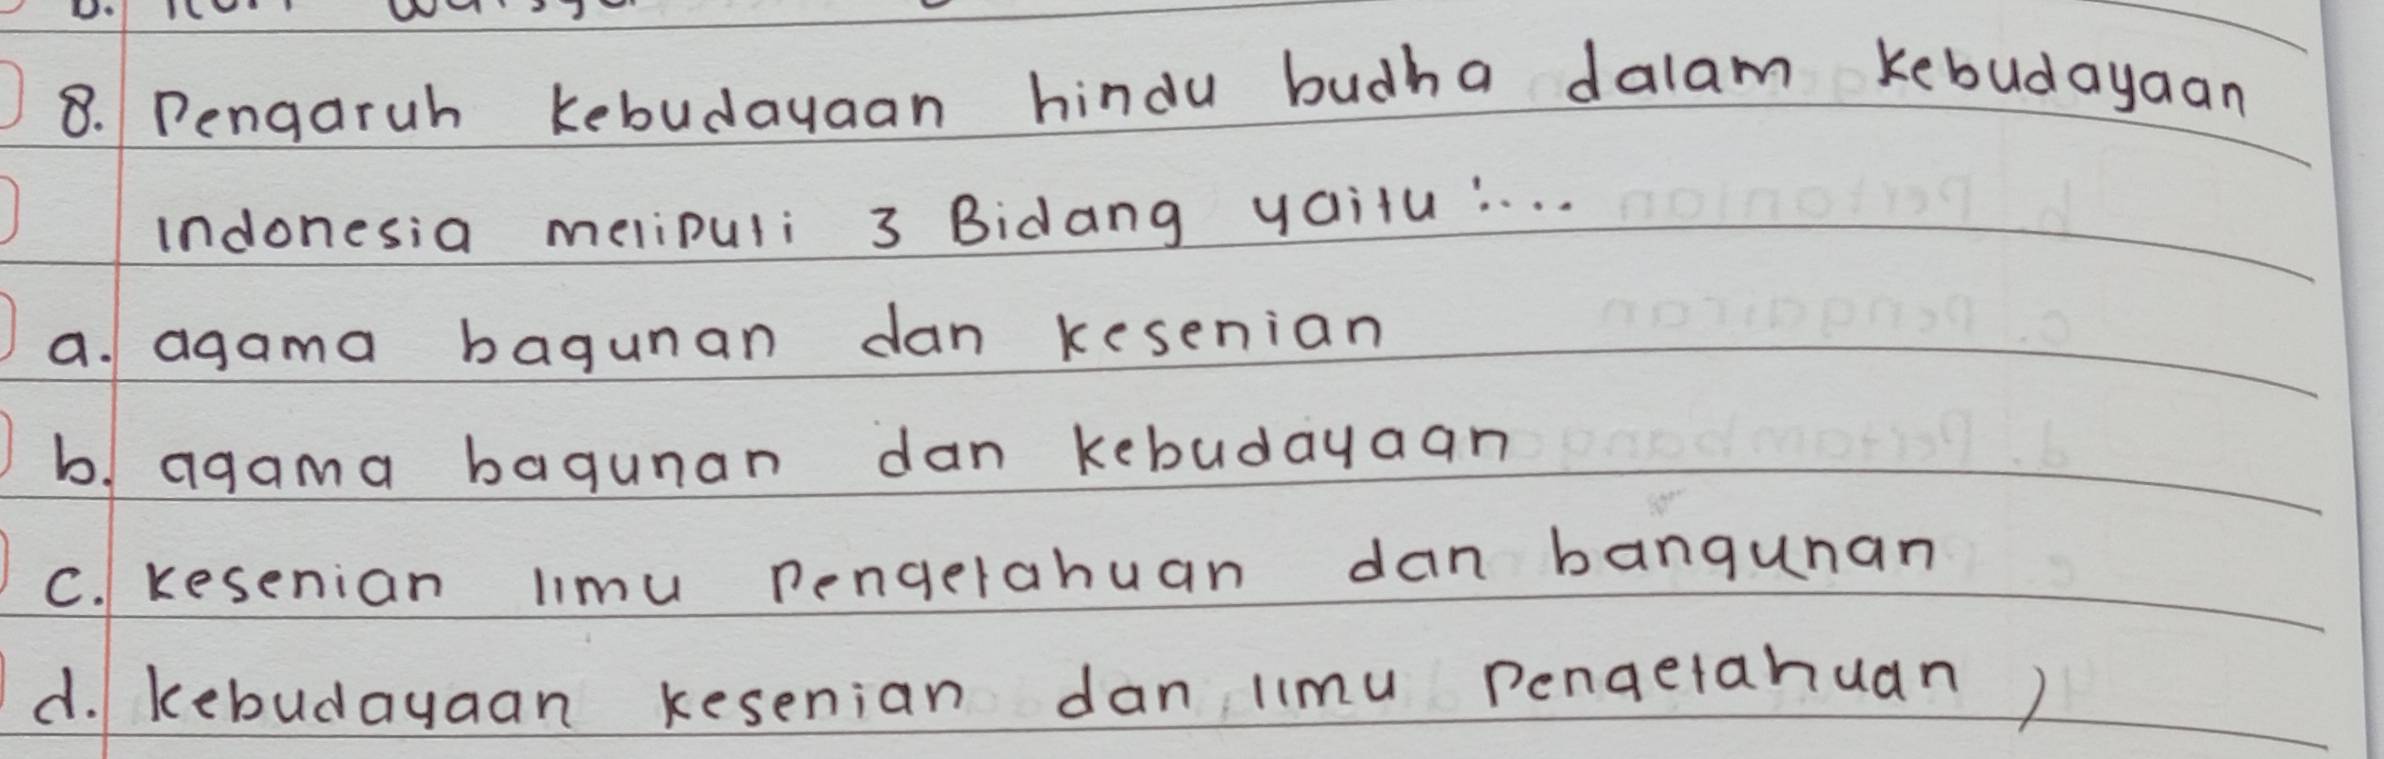 8. Pengaruh kebudayaan hindu budha dalam kebudayaan
indonesia meliputi 3 Bidang yaitu :....
a. agama bagunan dan kesenian
b. agama bagunan dan kebudayaan
c. kesenian ilmu pengetahuan dan bangunan
d. kebudayaan kesenian dan ilmu pengetahuan )